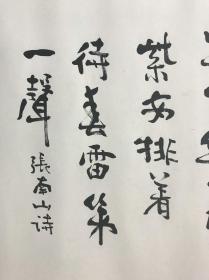 紫衣排着
待春雷第
一聲
張南山诗